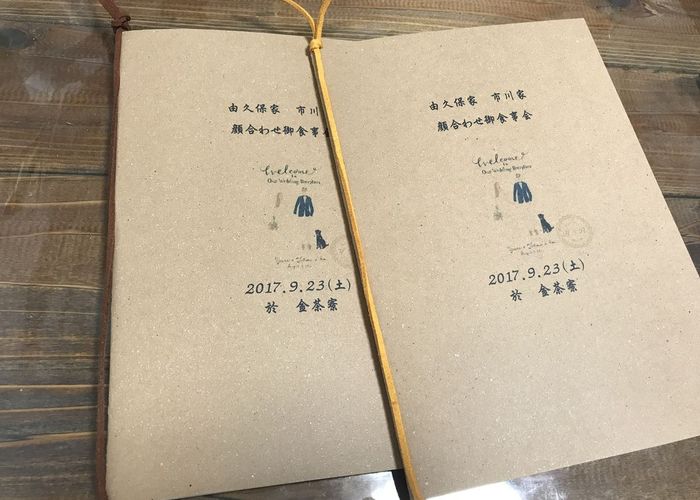 由久保家 市川
顔合わせ御食事会
Welcome
to
Our Wedding Reception
2017.9.23(土)
於 金茶寮
由久保家 市川家
顔合わせ御食事会
Welcome
to
Our Wedding Reception
2017.9.23(土)
於 金茶寮